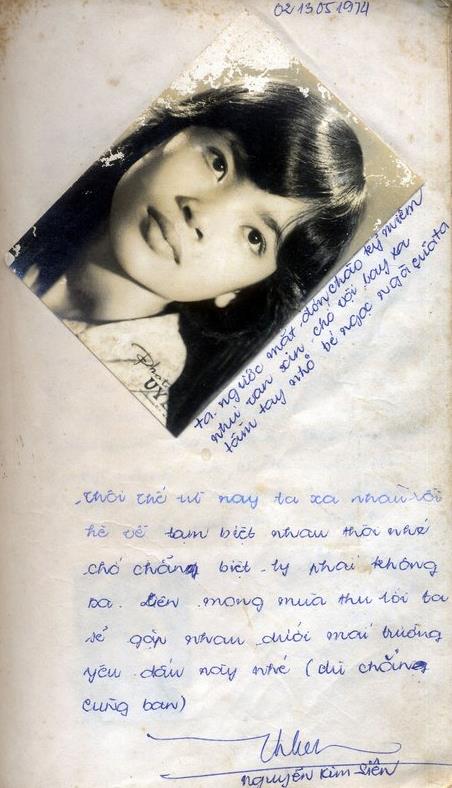 02 13.05.1974
Photo
UY
ta. ngước mắt đón chào kỷ niệm
như van xin chớ vội bay xa
tầm tay nhỏ bé ngọc ngà của ta
thôi thế từ nay ta xa nhau rồi
hè về tạm biệt nhau thôi nhé
chớ chẳng biệt ly phải không
ba. Liên mong mùa thu tới ta
sẽ gặp nhau dưới mái trường
yêu dấu này nhé (dù chẳng
cùng ban)
nguyễn Kim Liên